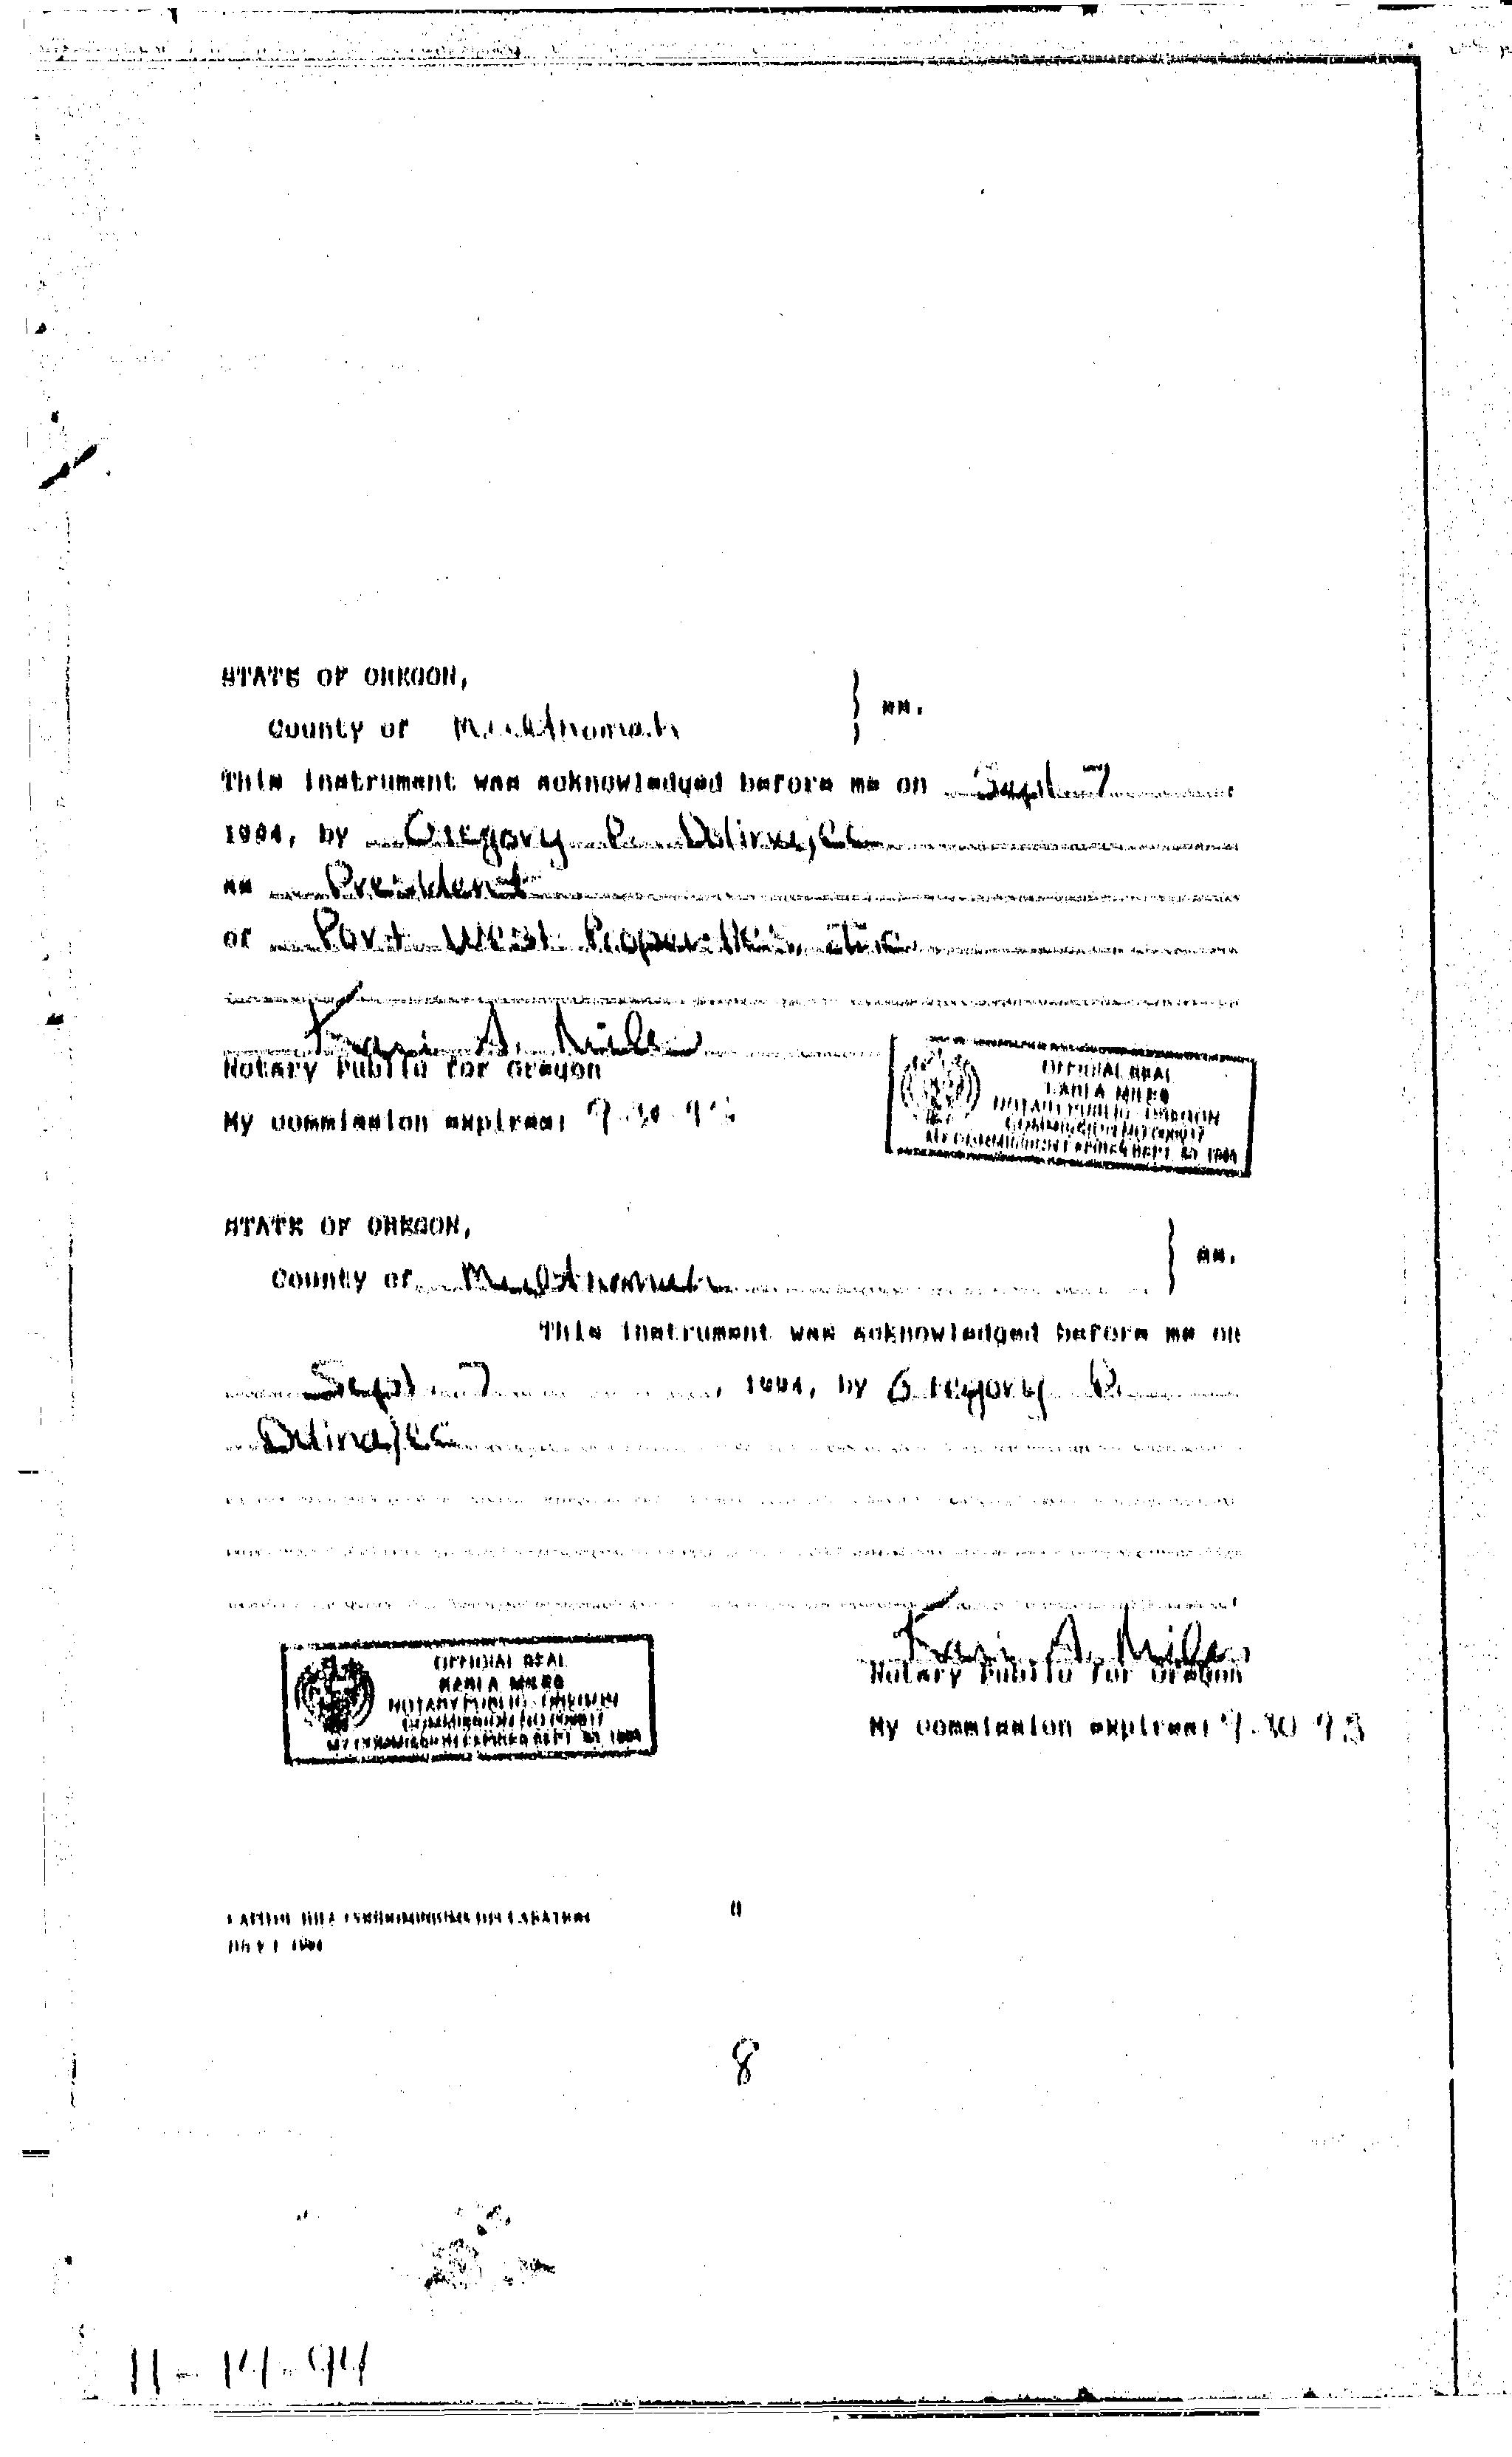 STATE OF OREGON,
County of Multnomah } ss.
This instrument was acknowledged before me on Sept 7,
1994, by Gregory P.
as President
of Port West Properties, Inc.
Kari A.
Notary Public for Oregon
My commission expires: 9-30-95
OFFICIAL SEAL
KARI A
NOTARY PUBLIC - OREGON
COMMISSION NO
MY COMMISSION EXPIRES SEPT. 30, 199
STATE OF OREGON,
County of Multnomah } ss.
This instrument was acknowledged before me on
Sept 7, 1994, by Gregory P.
Kari A.
Notary Public for Oregon
My commission expires: 9-30 95
OFFICIAL SEAL
KARI A
NOTARY PUBLIC - OREGON
COMMISSION NO
MY COMMISSION EXPIRES SEPT. 30, 199
HILL CONDOMINIUMS DECLARATION
8
11-14-94